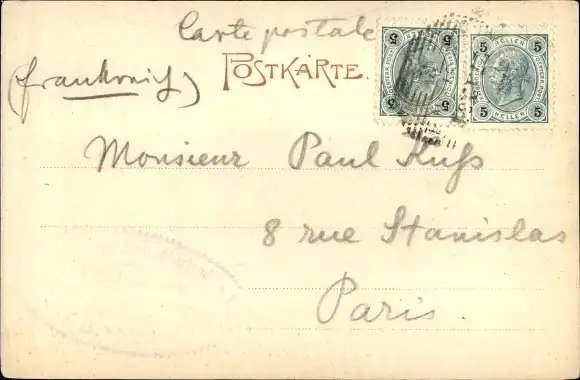 Carte postale
(Frankreich)
POSTKARTE.
5 5
HELLER
5 5
HELLER
Monsieur Paul Kuſs
8 rue Stanislas
Paris